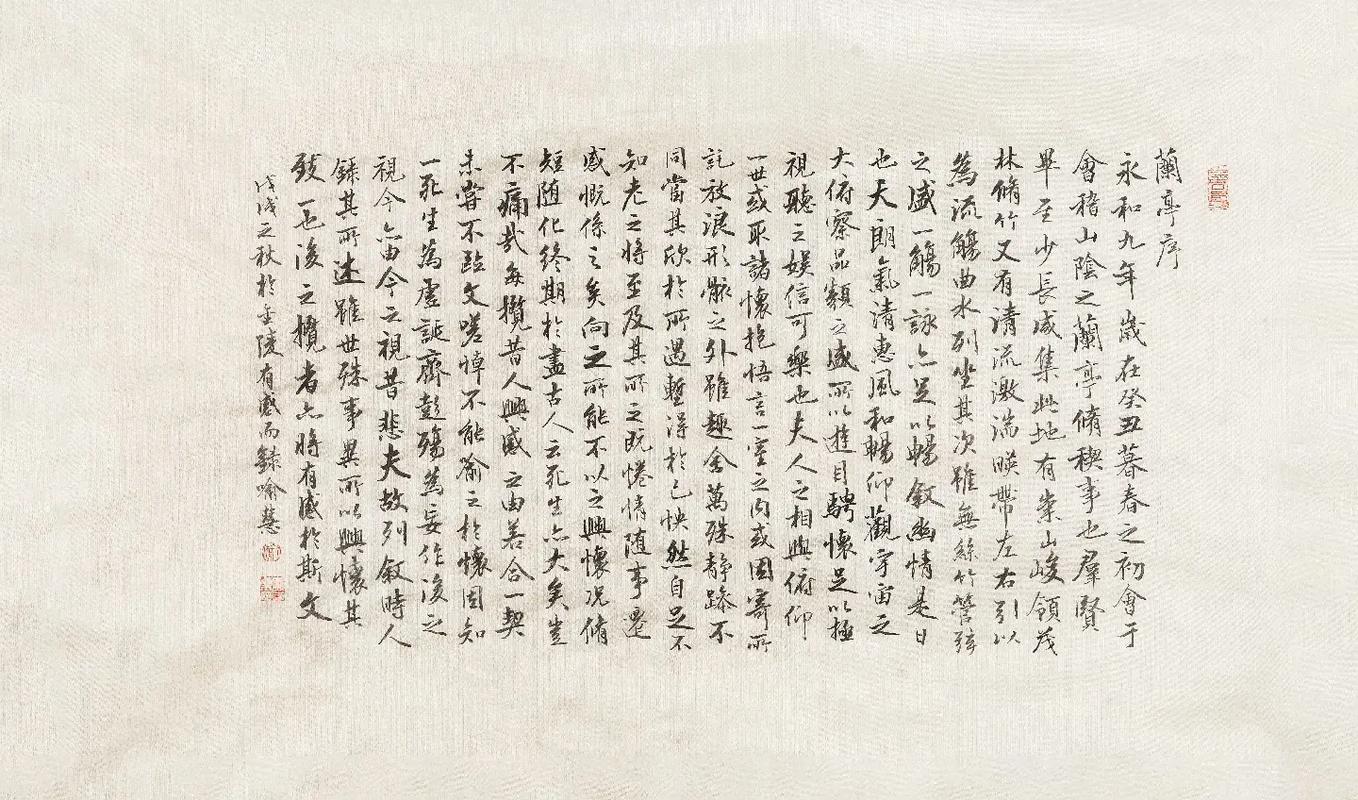 蘭亭序
永和九年歲在癸丑暮春之初會于
會稽山陰之蘭亭脩稧事也羣賢
畢至少長咸集此地有崇山峻領茂
林脩竹又有清流激湍暎帶左右引以
為流觴曲水列坐其次雖無絲竹管弦
之盛一觴一詠亦足以暢叙幽情是日
也天朗氣清惠風和暢仰觀宇宙之
大俯察品類之盛所以遊目騁懷足以極
視聽之娛信可樂也夫人之相與俯仰
一世或取諸懷抱悟言一室之內或因寄所
託放浪形骸之外雖趣舍萬殊静躁不
同當其欣於所遇暫得於己怏然自足不
知老之將至及其所之既惓情随事遷
感慨係之矣向之所能不以之興懷況脩
短随化終期於盡古人云死生亦大矣豈
不痛哉每攬昔人興感之由若合一契
未甞不臨文嗟悼不能喻之於懷固知
一死生為虛誕齊彭殤為妄作後之
視今亦由今之視昔悲夫故列叙時人
録其所述雖世殊事異所以興懷其
致一也後之攬者亦將有感於斯文
戊戌之秋於金陵有感而録喻慧